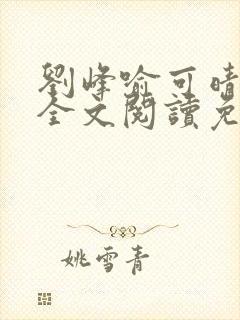 劉峰喻可晴
全文閱讀免
姚雪青